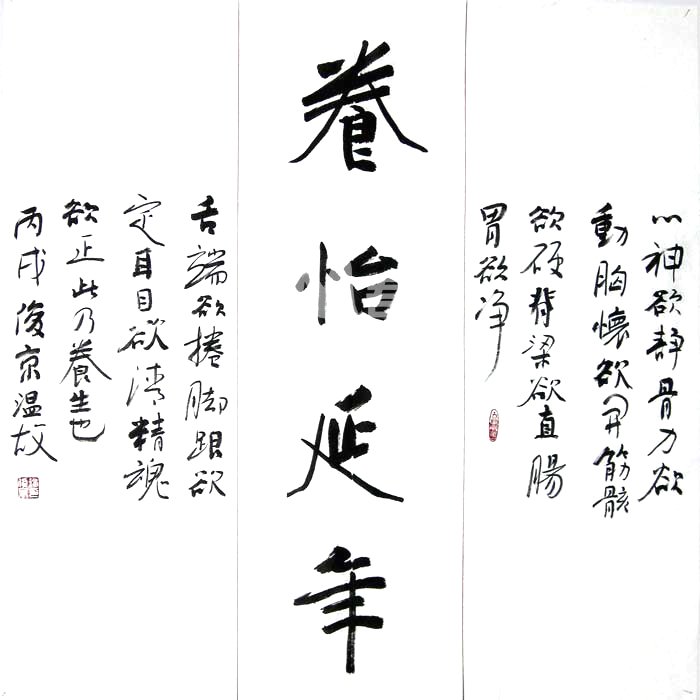 心神欲静骨力欲
動胸懷欲開筋骸
欲硬脊梁欲直腸
胃欲净
養怡延年
舌端欲捲脚跟欲
定耳目欲清精魂
欲正此乃養生也
丙戌俊京温故